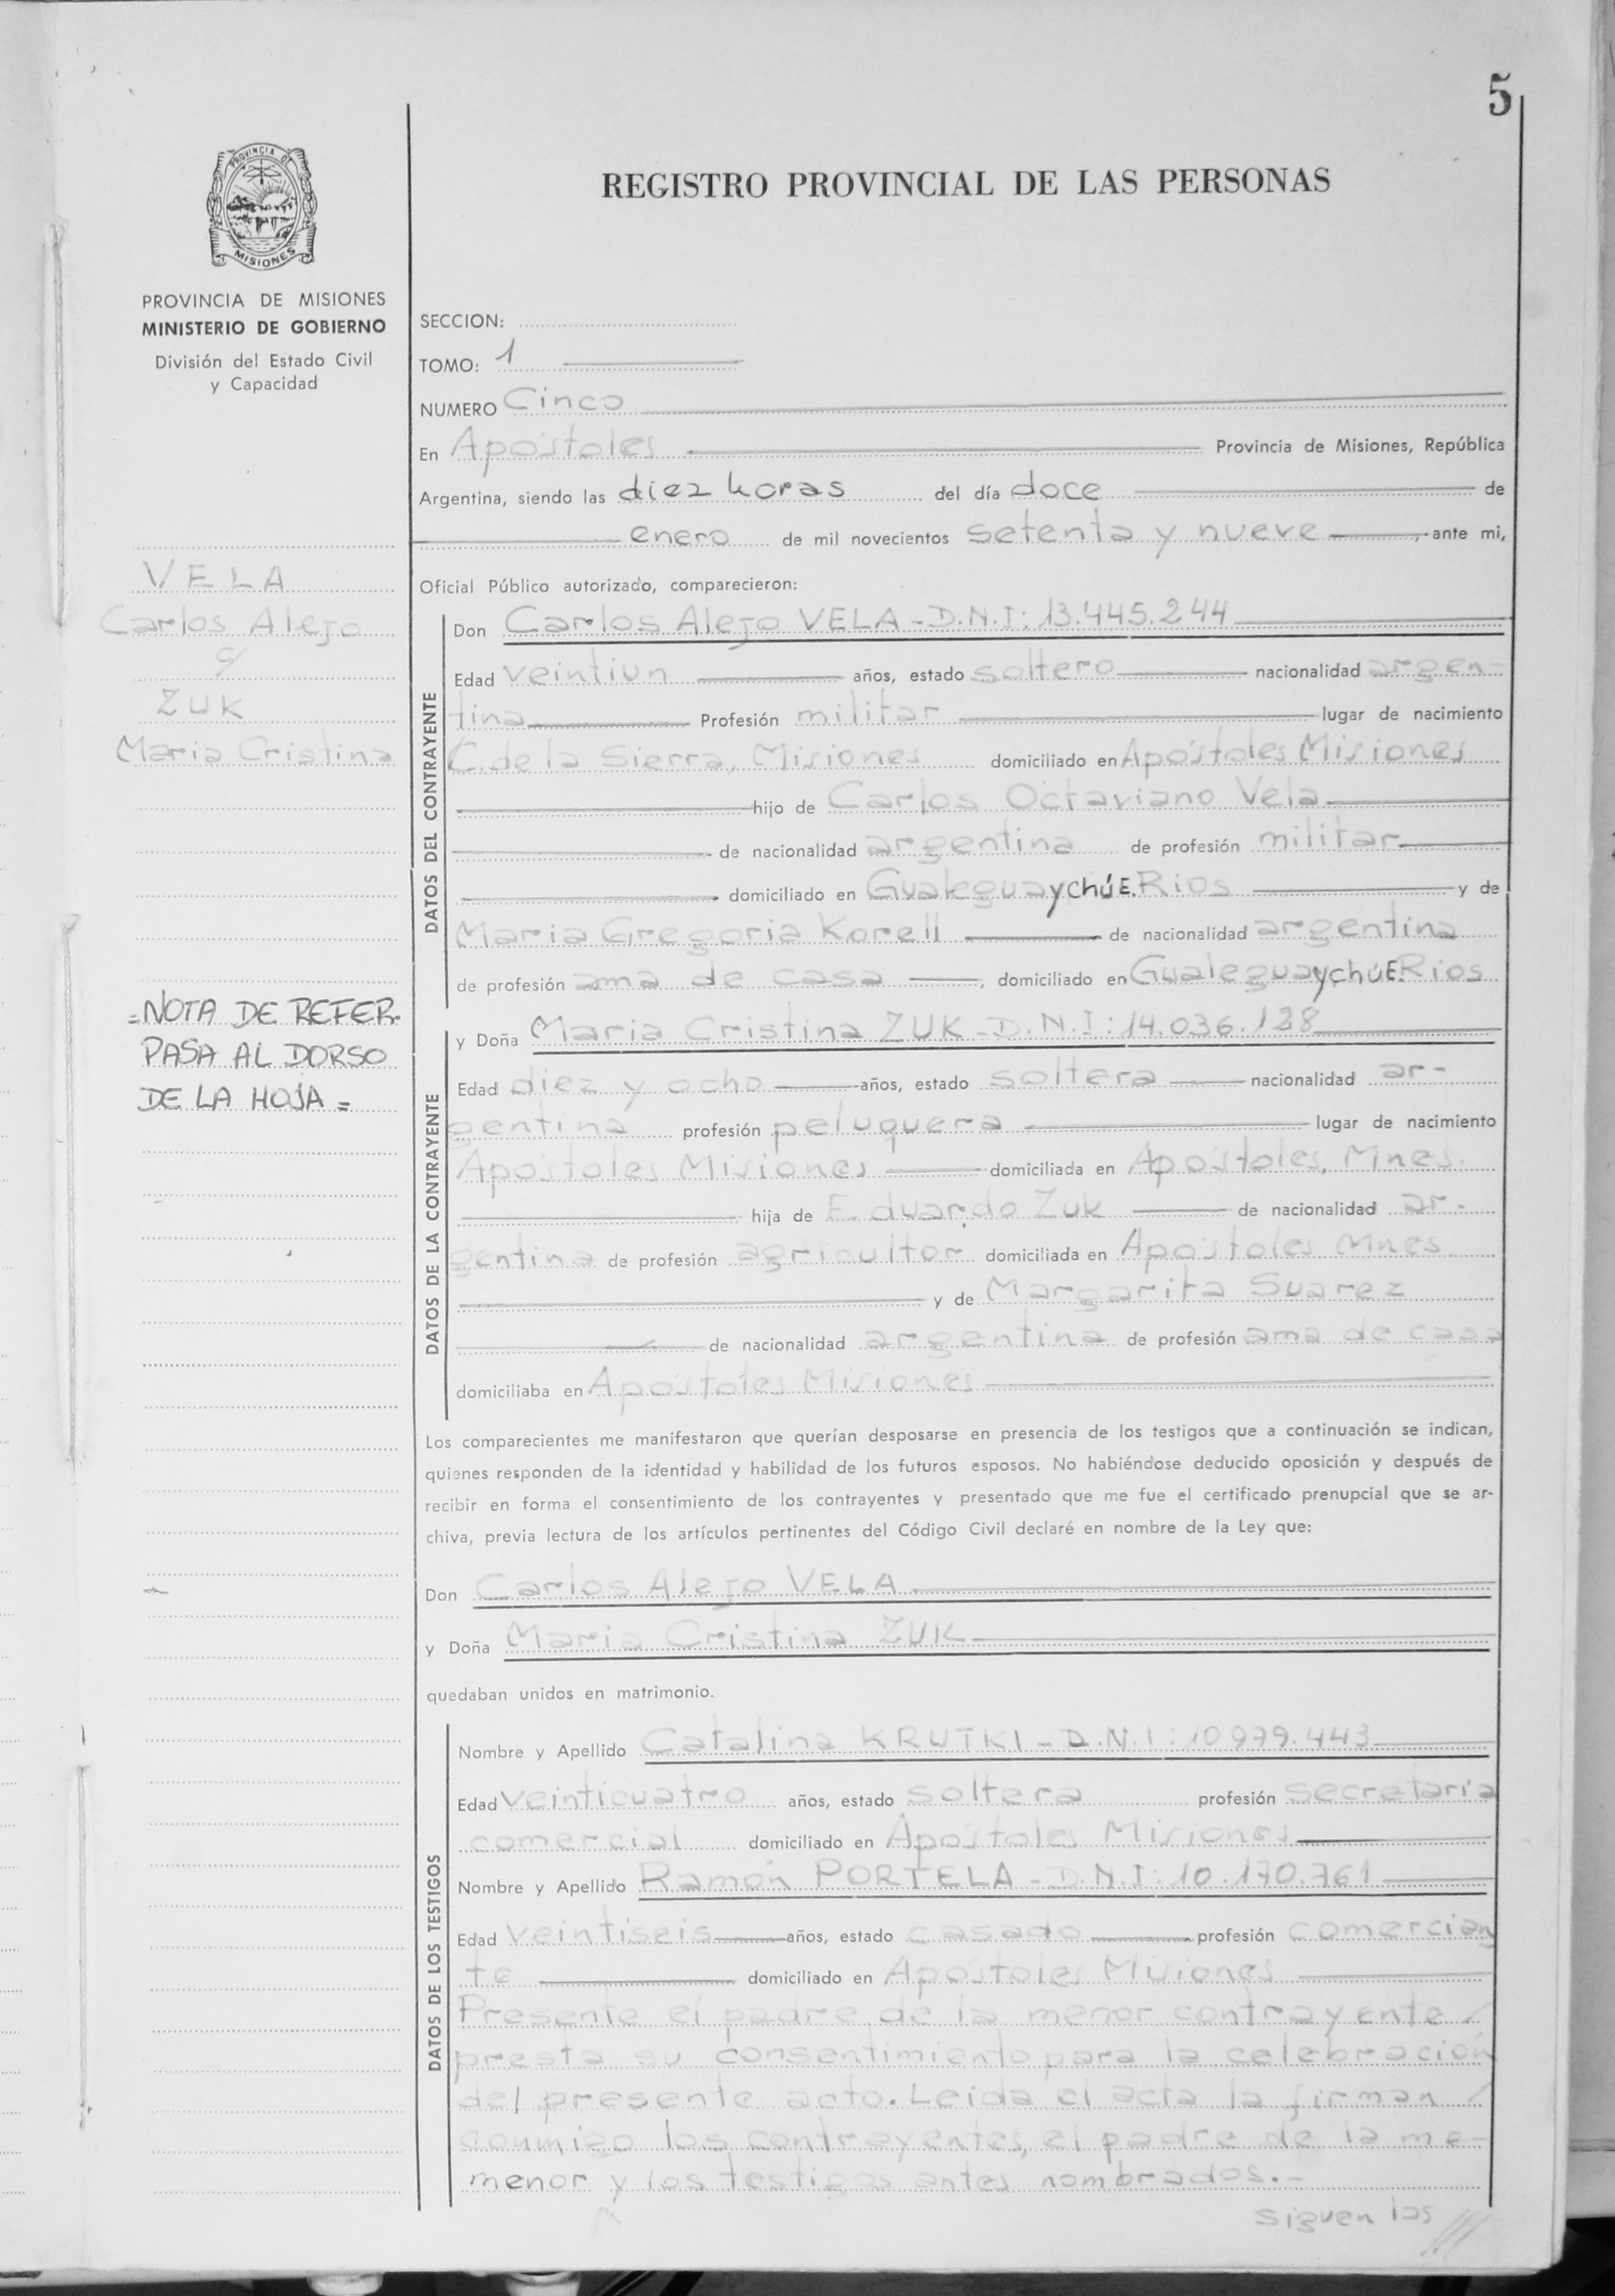 5
PROVINCIA DE
MISIONES
REGISTRO PROVINCIAL DE LAS PERSONAS
PROVINCIA DE MISIONES
MINISTERIO DE GOBIERNO
División del Estado Civil
y Capacidad
VELA
Carlos Alejo
c/
ZUK
Maria Cristina
=NOTA DE REFER.
PASA AL DORSO
DE LA HOJA=
SECCION:
TOMO: 1
NUMERO Cinco
En Apóstoles Provincia de Misiones, República
Argentina, siendo las diez horas del día doce de
enero de mil novecientos setenta y nueve ante mi,
Oficial Público autorizado, comparecieron:
DATOS DEL CONTRAYENTE
Don Carlos Alejo VELA - D.N.I: 13.445.244
Edad veintiun años, estado soltero nacionalidad argen-
tina Profesión militar lugar de nacimiento
C. de la Sierra, Misiones domiciliado en Apóstoles Misiones
hijo de Carlos Octaviano Vela
de nacionalidad argentina de profesión militar
domiciliado en Gualeguaychú E. Rios y de
Maria Gregoria Korell de nacionalidad argentina
de profesión ama de casa , domiciliado en Gualeguaychú E. Rios
DATOS DE LA CONTRAYENTE
y Doña Maria Cristina ZUK - D.N.I: 14.036.128
Edad diez y ocho años, estado soltera nacionalidad ar-
gentina profesión peluquera lugar de nacimiento
Apóstoles Misiones domiciliada en Apóstoles, Mnes.
hija de Eduardo Zuk de nacionalidad ar-
gentina de profesión agricultor domiciliada en Apóstoles Mnes
y de Margarita Suarez
de nacionalidad argentina de profesión ama de casa
domiciliaba en Apóstoles Misiones
Los comparecientes me manifestaron que querían desposarse en presencia de los testigos que a continuación se indican,
quienes responden de la identidad y habilidad de los futuros esposos. No habiéndose deducido oposición y después de
recibir en forma el consentimiento de los contrayentes y presentado que me fue el certificado prenupcial que se ar-
chiva, previa lectura de los artículos pertinentes del Código Civil declaré en nombre de la Ley que:
Don Carlos Alejo VELA
y Doña Maria Cristina ZUK
quedaban unidos en matrimonio.
DATOS DE LOS TESTIGOS
Nombre y Apellido Catalina KRUTKI - D.N.I: 10.979.443
Edad veinticuatro años, estado soltera profesión secretaria
comercial domiciliado en Apóstoles Misiones
Nombre y Apellido Ramón PORTELA - D.N.I: 10.170.761
Edad veintiseis años, estado casado profesión comercian
te domiciliado en Apóstoles Misiones
Presente el padre de la menor contrayente /
presta su consentimiento para la celebración
del presente acto. Leida el acta la firman /
conmigo los contrayentes, el padre de la me-
menor y los testigos antes nombrados.-
Siguen las ///